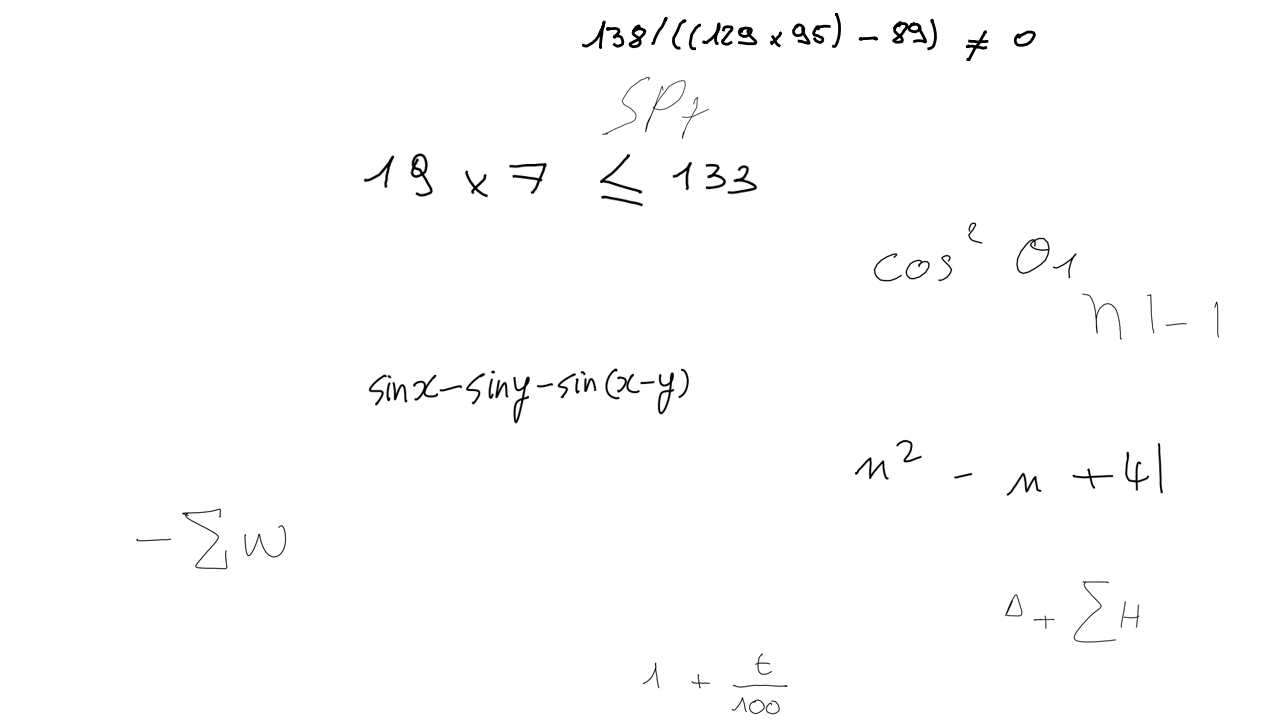 138/((129 × 95) - 89) ≠ 0
19 × 7 ≤ 133
cos² θ1
n 1 - 1
sinx-siny-sin(x-y)
n² - n + 41
-∑w
Δ + ∑H
1 + t/100